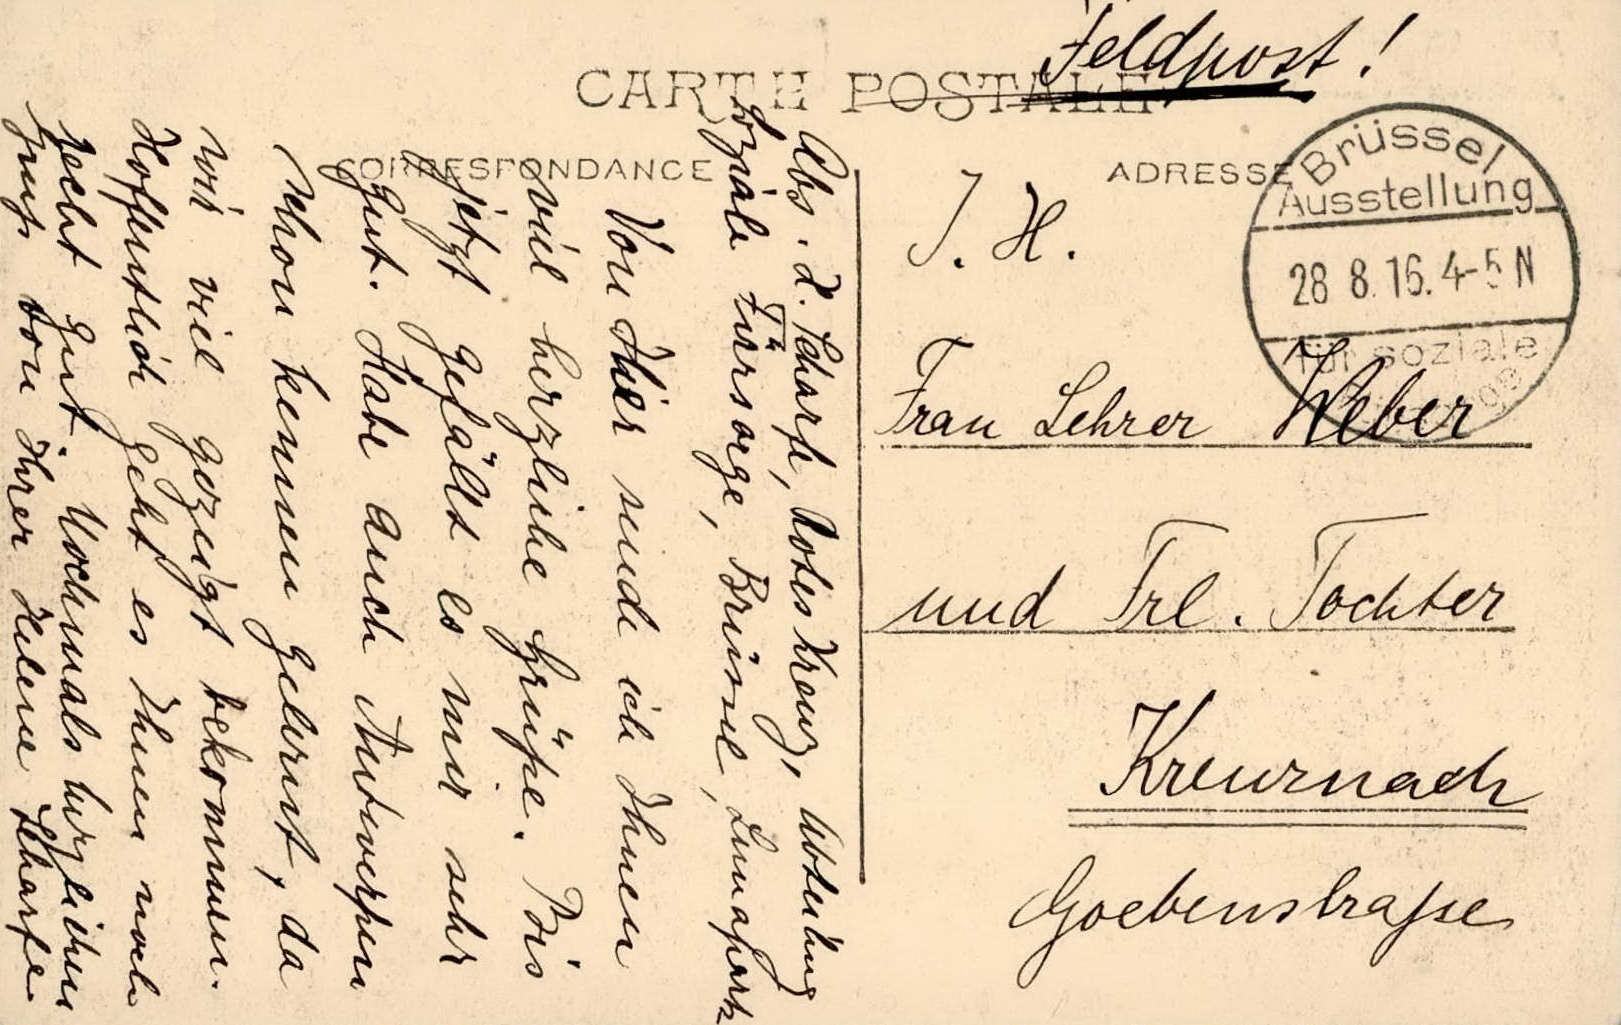 Feldpost!
CARTE POSTALE
CORRESPONDANCE
ADRESSE
Brüssel
Ausstellung
28 8. 16. 4-5 N
für soziale
Abs. H. Scharfe, Rotes Kreuz, Abteilung
Soziale Fürsorge, Brüssel, Lunapark
Von hier sende ich Ihnen
viel herzliche Grüße. Bis
jetzt gefällt es mir sehr
gut. Habe auch Antwerpen
schon kennen gelernt, da
wir viel gezeigt bekommen.
Hoffentlich geht es Ihnen noch
recht gut. Nochmals herzlichen
Gruß von Ihrer Helene Scharfe
I. H.
Frau Lehrer Weber
und Frl. Tochter
Kreuznach
Goebenstraße